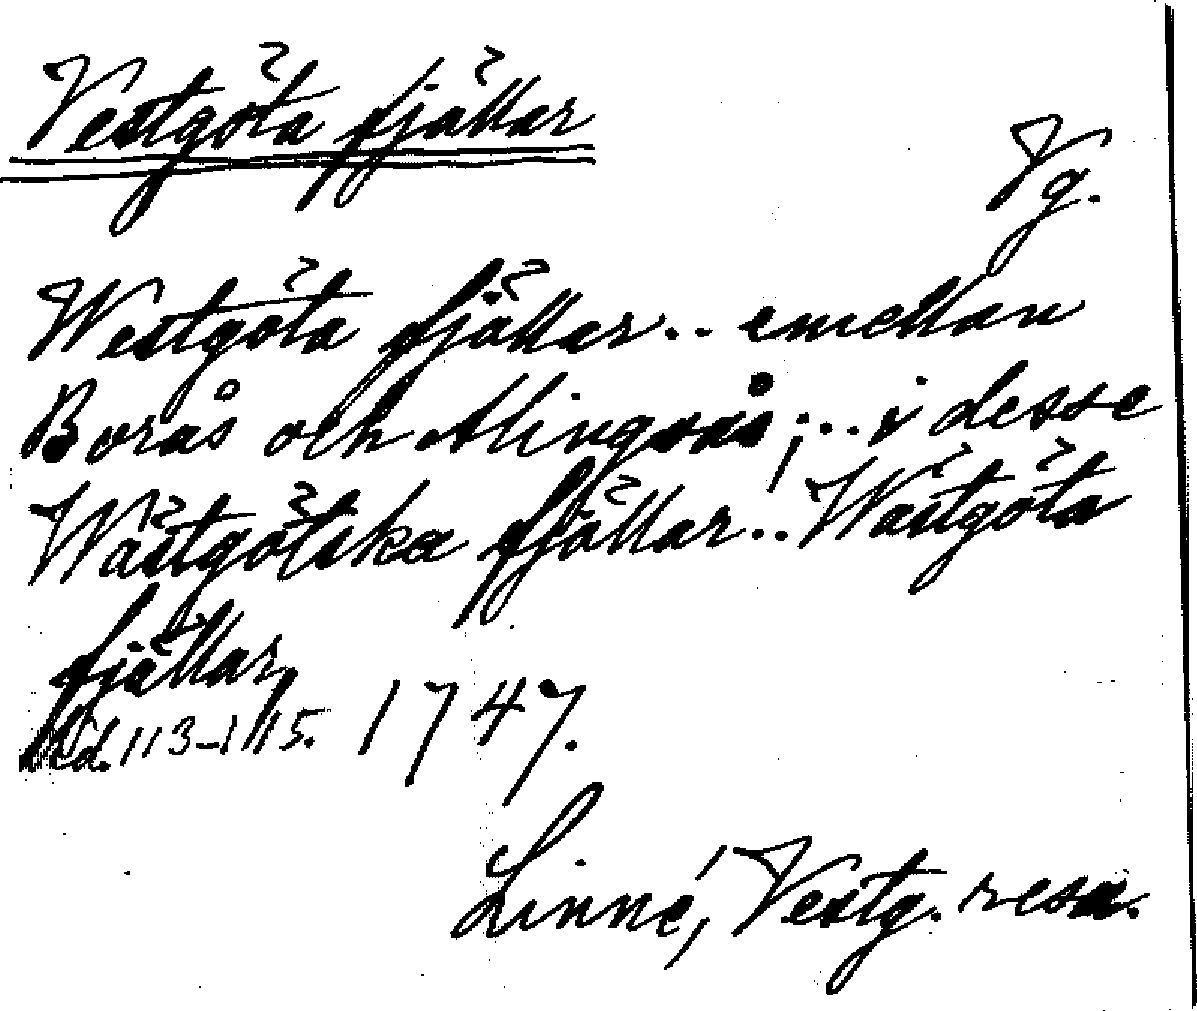 Vestgöta fjällar
Vg.
Westgöta fjällar.. emellan
Borås och Alingsås;.. i desse
Wästgötska fjällar.. Wästgöta
fjällar,
sid. 113-115. 1747.
Linné, Vestg. resa.